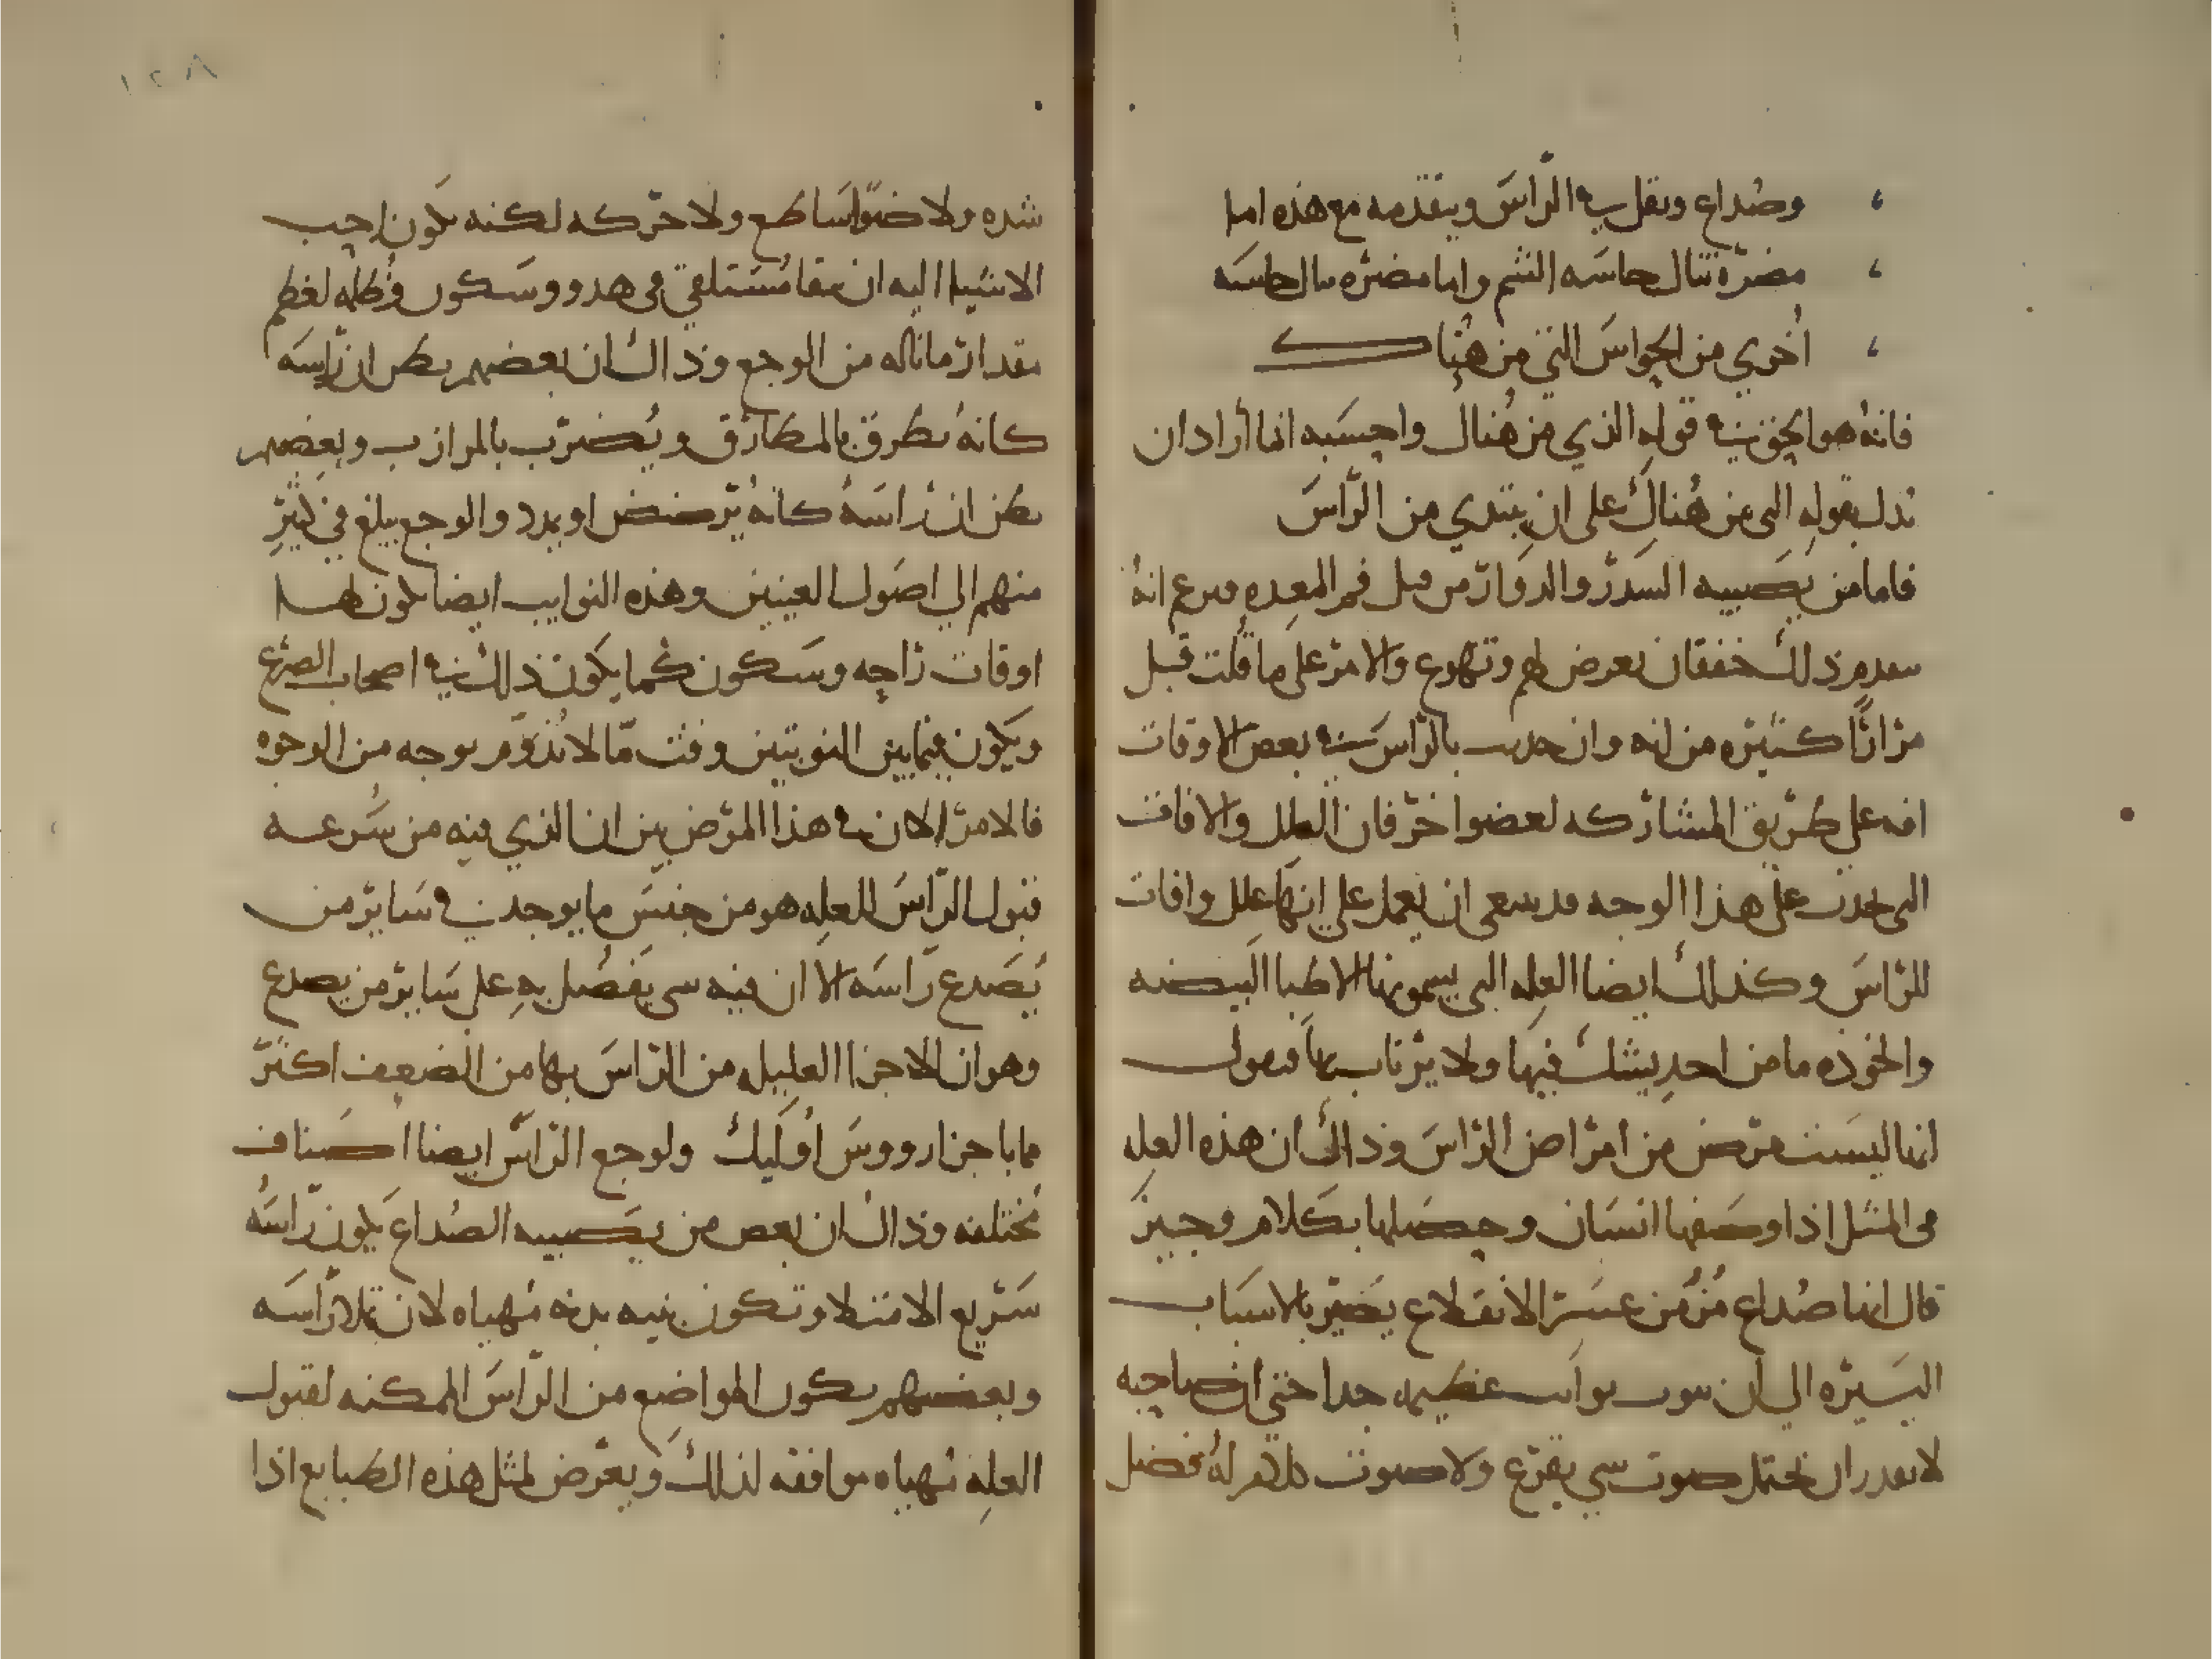 وصُداع وثقل في الرّاسَ ويتقدمه مع هذه اما
مضرّة تنال حاسَه الشم واما مضرّه تنال حاسَه
اُخري من الحواسَ التي من هُناك
فانهُ هو الحق في قوله الذي من هُنال واحِسَبه انما أراد ان
تدل بقوله التي من هُناك على ان يبتدي من الرّاسَ
فاما من يصَيبه السَدرْ والدوارْ من قبل فم المعِده فيزعم انهُ
يتقدم ذلك خفقان يعرض لهم وتهوع والامرْ على ما قُلت قبل
مرْارًا كثيرْه من انه وان حدثت بالرّاسَ في بعض الاوقات
افه على طرْيق المشارْكه لعضو اخرْ فان العلل والافات
التي تحدث على هذا الوجه قد ينبغي ان يعمل علي انهَا علل وافات
للرْاسَ وكذلك ايضا العِله التي يسمونها الاطبا البَيضه
والخوذه ما من احدٍ يشك فيهَا ولا يرْتاب بهَا فيقول
انها ليسَت مرْض من امرْاض الرْاسَ وذاك ان هذه العلِه
في المثل اذا وصَفها انسَان وحصَلها بكلام وجيز
قال انها صُداع مُزمُن عسَرْ الانقلاع يَصَيرْ بالاسبَاب
اليسَيرْه الي ان ينوب نوايب عظيمه جدا حتي ان صَاحبه
لا يقدر ان يحتمل صوت شي يقرْع ولا صوت كلام لهُ فضل
شده ولا ضوًا سَاطع ولا حرّكه لكنه يكون احِب
الاشيا اليه ان يبقا مُسَتلقي في هدو وسَكون وظُلمه لعظم
مقدارْ ما نالهُ من الوجع وذاك ان بعضهم يظن ان رْاسَه
كانهُ يطُرق بالمطارْق ويُضرْب بالمرازب وبعِضهم
يظن ان رْاسَهُ كانهُ يرْضض او يمدد والوجع يبلغ في كثيرٍ
منهم الي اصَول العينين وهذه النوايب ايضا يكون لها
اوقات رْاحه وسَكون كما يكون ذلك في اصحاب الصرْع
ويكون فيما بين النوبتين وقت مّا لا تذوم بوجه من الوجوه
فالامرْ الان في هذا المرّض بين ان الذي فيه من سُرعه
قبول الرّاسَ للعلِه هو من جنسَ ما يوجد في سَايرْ من
يَصَدع رْاسَه الا ان فيه شي يَفضُل بهِ علي سَايرْ من يصدع
وهو ان الاجزا العليله من الرّاسَ بها من الضعِف اكثرْ
مما باجزا رووسَ اوليك ولوجع الرّاسَ ايضا اصَناف
مُختلفه وذاك ان بعض من يصَيبه الصُداع يكون رْاسَهُ
سَرْيع الامتلا وتكون بنيه بدنه مُهياه لان تملا رّاسَه
وبعضهم يكون المواضعِ من الرّاسَ الممكنه لقبول
العلِه مُهياه موافقه لذلك ويعرْض لمثل هذه الطبايع اذا
١٢٨